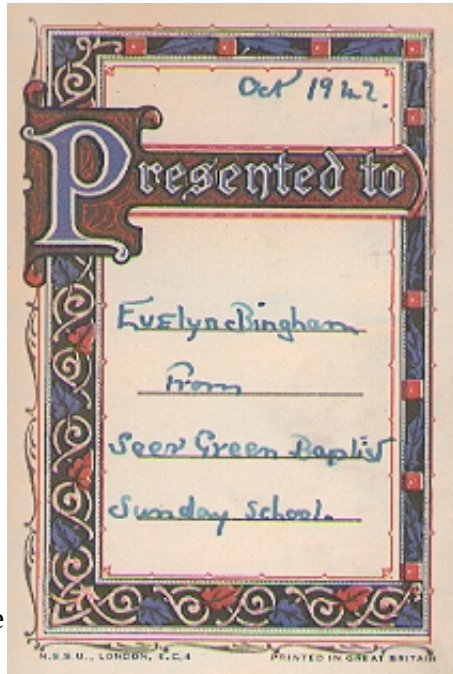 Oct 1942.
Presented to
Evelyn Bingham
From
Seer Green Baptist
Sunday School.
e
N.S.S.U., LONDON, E.C.4 PRINTED IN GREAT BRITAIN